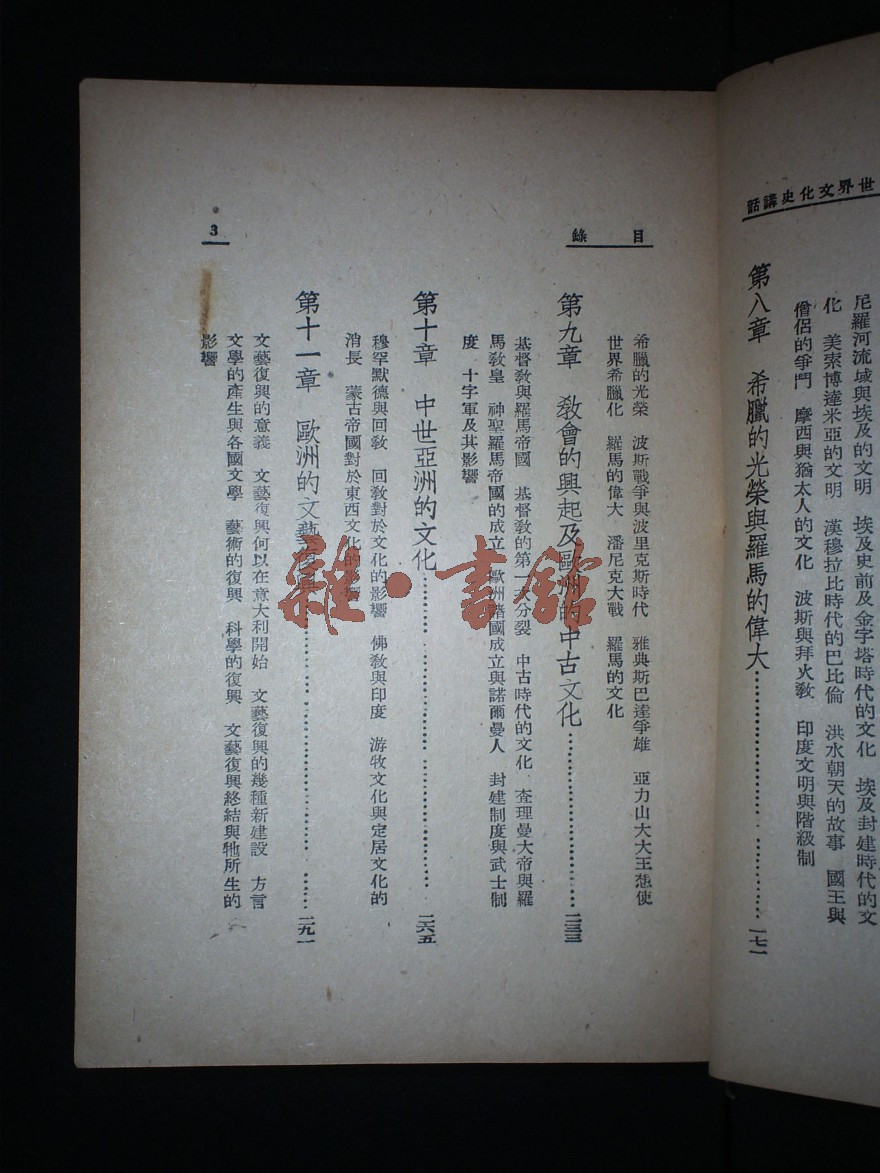 世界文化史講話
尼羅河流域與埃及的文明　埃及史前及金字塔時代的文化　埃及封建時代的文
化　美索博達米亞的文明　漢穆拉比時代的巴比倫　洪水朝天的故事　國王與
僧侶的爭鬥　摩西與猶太人的文化　波斯與拜火教　印度文明與階級制
第八章　希臘的光榮與羅馬的偉大…………一七一
目錄
希臘的光榮　波斯戰爭與波里克斯時代　雅典斯巴達爭雄　亞力山大大王想使
世界希臘化　羅馬的偉大　潘尼克大戰　羅馬的文化
第九章　教會的興起及歐洲的中古文化…………二三三
基督教與羅馬帝國　基督教的第一次分裂　中古時代的文化　查理曼大帝與羅
馬教皇　神聖羅馬帝國的成立　歐洲諸國成立與諾爾曼人　封建制度與武士制
度　十字軍及其影響
第十章　中世亞洲的文化…………二六五
穆罕默德與回教　回教對於文化的影響　佛教與印度　游牧文化與定居文化的
消長　蒙古帝國對於東西文化的影響
第十一章　歐洲的文藝復興…………二九一
文藝復興的意義　文藝復興何以在意大利開始　文藝復興的幾種新建設　方言
文學的產生與各國文學　藝術的復興　科學的復興　文藝復興終結與牠所生的
影響
3
雜·書館